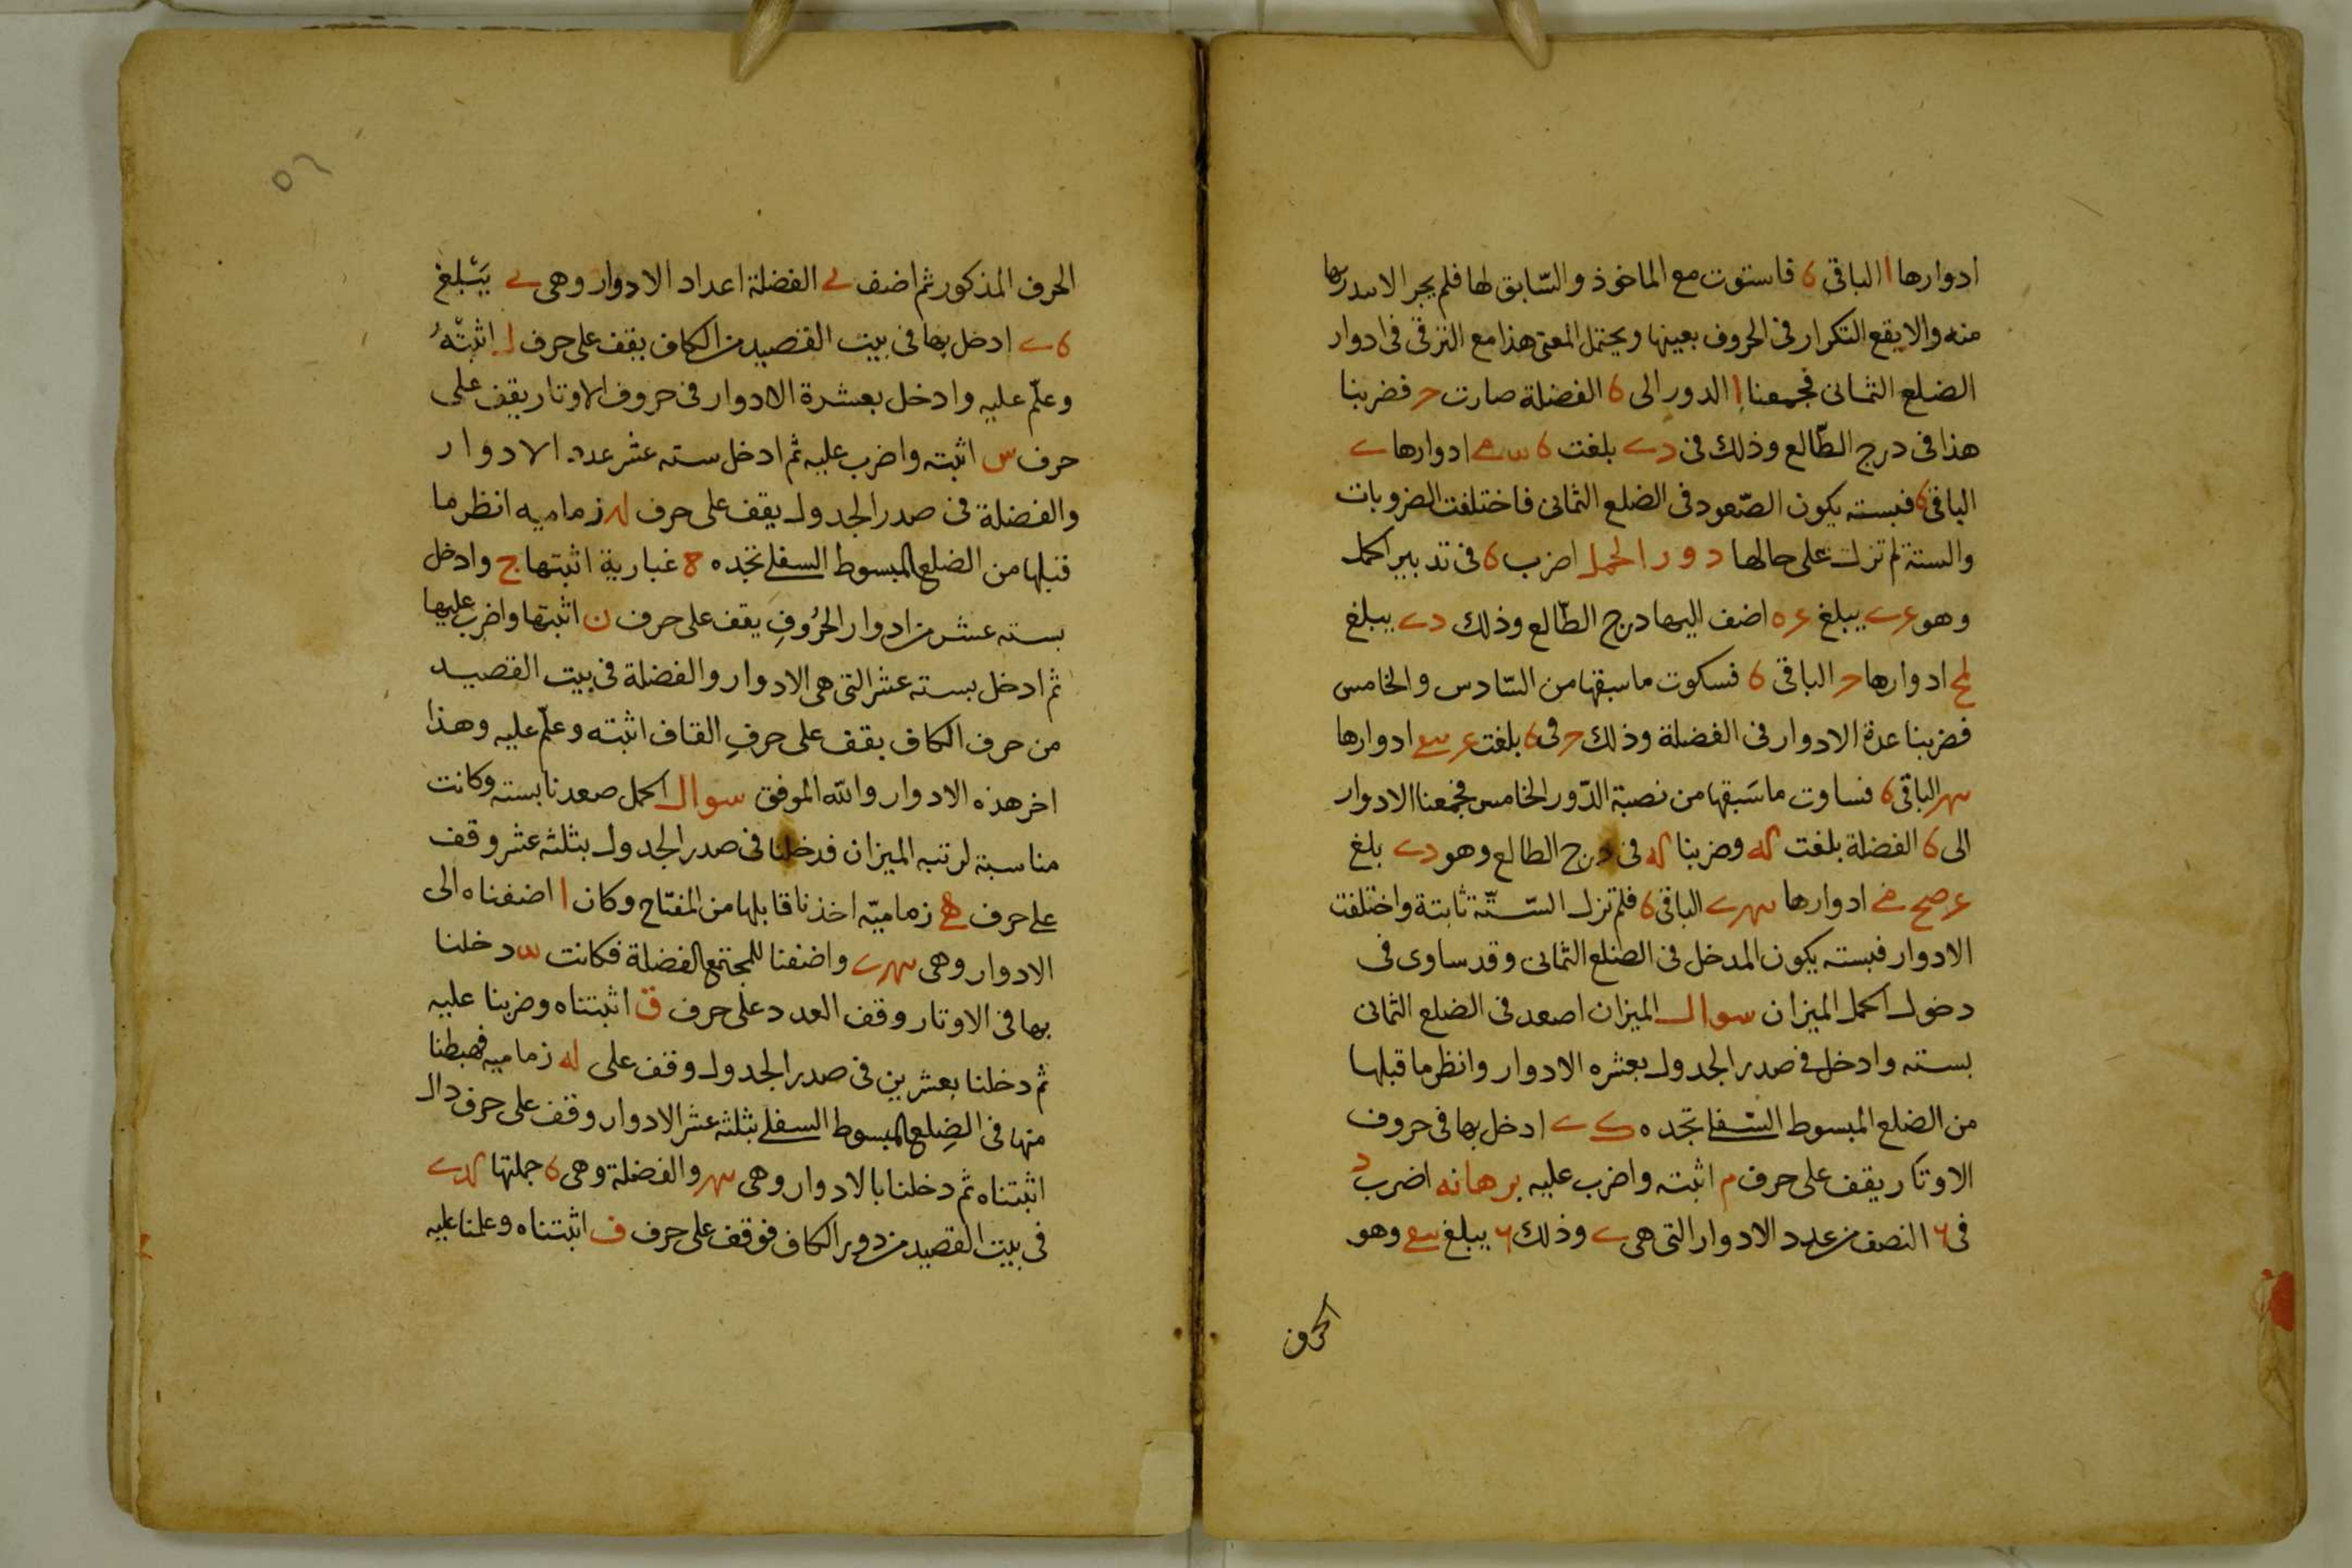 ادوارها ا الباقى 6 فاستوت مع الماخوذ والسّابق لها فلم يجر الا
منه والا يقع التكرار فى الحروف بعينها ويحتمل المعنى هذا مع الترقى فى ادوار
الضلع الثمانى فجمعنا ا الدور الى 6 الفضلة صارت فضربنا
هذا فى درج الطّالع وذلك فى بلغت ادوارها
الباقى 6 فبسته يكون الصّعود فى الضلع الثمانى فاختلفت المضروبات
والستة لم تزل على حالها دور الحمل اضرب 6 فى تدبير الحمل
وهو يبلغ اضف اليها درج الطّالع وذلك يبلغ
ادوارها الباقى 6 فسكوت ما سبقها من السّادس والخامس
فضربنا عدة الادوار فى الفضلة وذلك فى 6 بلغت ادوارها
الباقى 6 فساوت ما سَبقها من نصبة الدّور الخامس فجمعنا الادوار
الى 6 الفضلة بلغت وضربنا فى درج الطالع وهو بلغ
ادوارها الباقى 6 فلم تزل السّتّة ثابتة واختلفت
الادوار فبسته يكون المدخل فى الضلع الثمانى وقد ساوى فى
دخول الحمل الميزان سوال الميزان اصعد فى الضلع الثمانى
بسته وادخل فى صدر الجدول بعشره الادوار وانظر ما قبلها
من الضلع المبسوط السّفلى تجده ادخل بها فى حروف
الاوتار يقف على حرف م اثبته واضرب عليه برهانه اضرب
فى النصف من عدد الادوار التى هى وذلك يبلغ وهو
الحرف
الحرف المذكور ثم اضف الفضلة اعداد الادوار وهى يَبْلغ
ادخل بها فى بيت القصيد من الكاف يقف على حرف ل اثبتْهُ
وعلّم عليه وادخل بعشرة الادوار فى حروف الاوتار يقف على
حرف س اثبته واضرب عليه ثم ادخل سته عشر عدد الادوار
والفضلة فى صدر الجدول يقف على حرف زماميه انظر ما
قبلها من الضلع المبسوط السفلى تجده 8 غبارية اثبتها ح وادخل
بسته عشر من ادوار الحُروفِ يقف على حرف ن اثبتها واضرب عليها
ثم ادخل بسته عشر التى هى الادوار والفضلة فى بيت القصيد
من حرف الكاف يقف على حرفِ القاف اثبته وعلّم عليه وهذا
اخر هذه الادوار والله الموفق سوال الحمل صعدنا بسته وكانت
مناسبة لرتبه الميزان فدخلنا فى صدر الجدول بثلثه عشر وقف
على حرف زماميّه اخذنا قابلها من المفتاح وكان ا اضفناه الى
الادوار وهى واضفنا للمجتمع الفضلة فكانت دخلنا
بها فى الاوتار وقف العدد على حرف ق اثبتناه وضربنا عليه
ثم دخلنا بعشرين فى صدر الجدول وقف على له زماميه فهبطنا
منها فى الضِلع المبسوط السفلى بثلثه عشر الادوار وقف على حرف دال
اثبتناه ثم دخلنا بالادوار وهى والفضلة وهى 6 جملتها
فى بيت القصيد من دور الكاف فوقف على حرف ف اثبتناه وعلمنا عليه